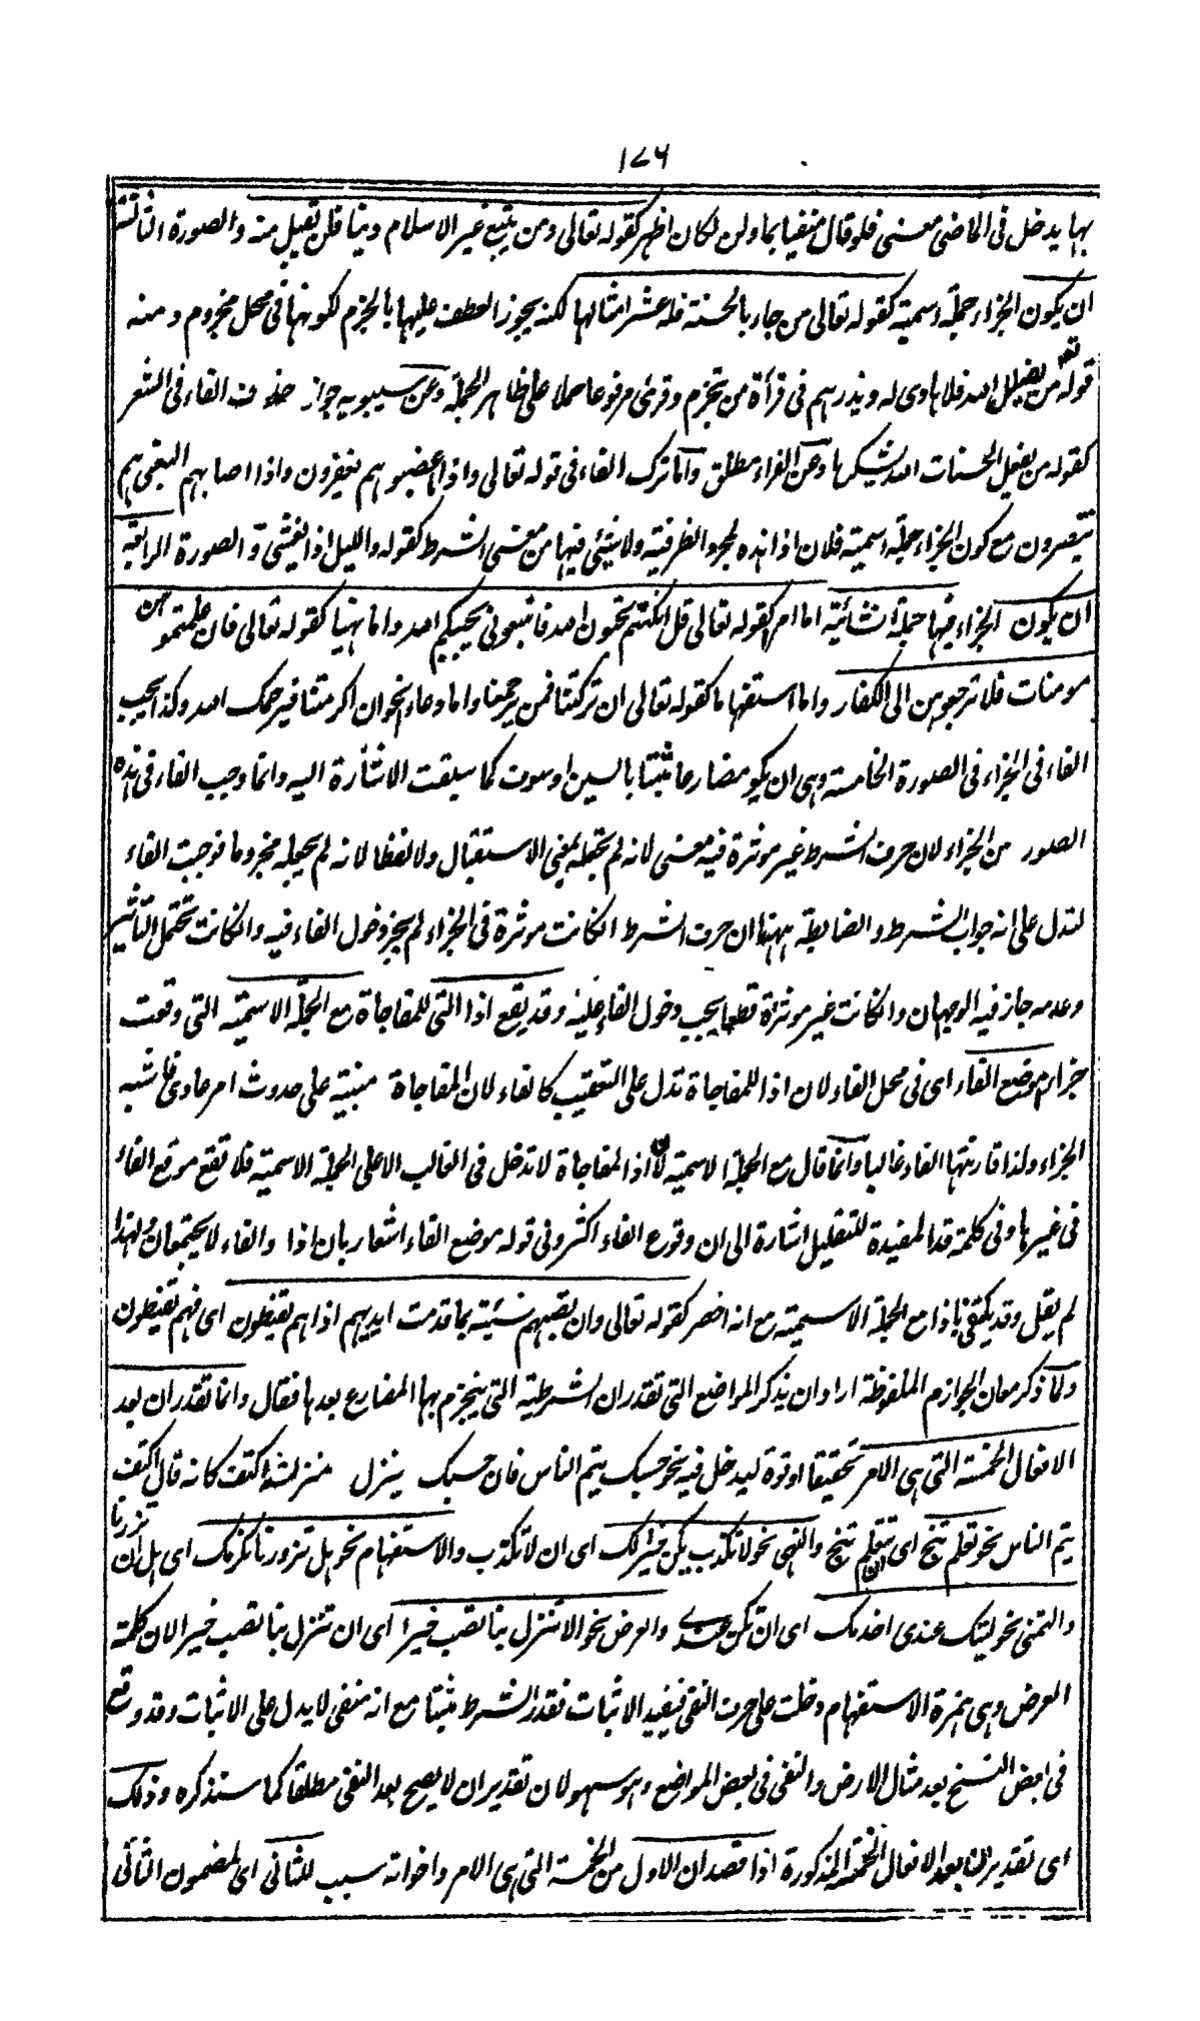 ١٧٦
بها يدخل فى الماضى معنى فلو قال منفيا بما ولن لكان اظهر كقوله تعالى ومن يتبع غير الاسلام دينا فلن تقبل منه والصورة الثالثة
ان يكون الجزاء جملة اسمية كقوله تعالى من جاء بالحسنة فله عشر امثالها لكنه يجوز العطف عليها بالجزم لكونها فى محل مجزوم ومنه
قوله تعـ من يضلل الله فلا هادى له ويذرهم فى قرأة من تجزم وقرئ مرفوعا حملا على ظاهر الجملة وعن سيبويه جواز حذف الفاء فى الشعر
كقوله من يفعل الحسنات الله يشكرها وعن الفراء مطلق واما ترك الفاء فى قوله تعالى واذا ما غضبوا هم يغفرون واذا اصابهم البغى هم
ينتصرون مع كون الجزاء جملة اسمية فلان اذا هذه لمجرد الظرفية ولا شيئى فيها من معنى الشرط كقوله والليل اذا يغشى و الصورة الرابعة
ان يكون الجزاء فيها جملة انشائية اما امر كقوله تعالى قل ان كنتم تحبون الله فاتبعونى يحببكم الله واما نهيا كقوله تعالى فان علمتموهن
مومنات فلا ترجعوهن الى الكفار واما استفهاما كقوله تعالى ان تركتنا فمن يرحمنا واما دعاء نحو ان اكرمتنا فيرحمك الله وكذا يجب
الفاء فى الجزاء فى الصورة الخامسة وهى ان يكو مضارعا مثبتا بالسين او سوف كما سبقت الاشارة اليه وانما وجب الفاء فى هذه
الصور من الجزاء لان حرف الشرط غير موثرة فيه معنى لانه لم يجعله بمعنى الاستقبال ولا لفظا لانه لم يجعله مجزوما فوجبت الفاء
لتدل على انه جواب الشرط والضابطة ههنا ان حرف الشرط ان كانت موثرة فى الجزاء لم يجز دخول الفاء فيه وان كانت تحتمل التاثير
وعدمه جاز فيه الوجهان وان كانت غير موثرة قطعا يجب دخول الفاء عليه وقد يقع اذا التى للمفاجاة مع الجملة الاسمية التى وقعت
جزاء موضع الفاء اى فى محل الفاء لان اذا للمفاجاة تدل على التعقيب كالفاء لان المفاجاة مبنية على حدوث امر عادى فاشبه
الجزاء ولذا قارنتها الفاء غالبا وانما قال مع الجملة الاسمية لان اذا المفاجاة لا تدخل فى الغالب الا على الجملة الاسمية فلا تقع موقع الفاء
فى غيرها وفى كلمة قد المفيدة للتقليل اشارة الى ان وقوع الفاء اكثر وفى قوله موضع الفاء اشعار بان اذا والفاء لا يجتمعان ولهذا
لم يقل وقد يكتفى باذا مع الجملة الاسمية مع انه اخصر كقوله تعالى وان تصبهم سيئة بما قدمت ايديهم اذا هم يقنطون اى فهم يقنطون
ولما ذكر معان الجوازم الملفوظة اراد ان يذكر المواضع التى تقدر ان الشرطية التى ينجزم بها المضارع بعدها فقال وانما تقدر ان بعد
الافعال الخمسة التى هى الامر تحقيقا او قوة ليدخل فيه نحو حسبك ينم الناس فان حسبك ينزل منزلة اكتف كانه قال اكتف
ينم الناس نحو تعلم تنج اى ان تتعلم تنج والنهى نحو لا تكذب يكن خيرا لك اى ان لا تكذب والاستفهام نحو هل تزورنا نكرمك اى هل ان تزرنا
والتمنى نحو ليتك عندى اخدمك اى ان تكن عندى والعرض نحو الا تنزل بنا تصب خيرا اى ان تنزل بنا تصب خيرا لان كلمة
العرض وهى همزة الاستفهام دخلت على حرف النفى فيفيد الاثبات فقدر الشرط مثبتا مع انه منفى لا يدل على الاثبات وقد وقع
فى بعض النسخ بعد مثال الارض والنفى فى بعض المواضع وهو سهو لان تقدير ان لا يصح بعد النفى مطلقا كما سنذكره وذلك
اى تقدير ان بعد الافعال الخمسة المذكورة اذا قصد ان الاول من الخمسة التى هى الامر واخواته سبب للثانى اى لمضمون الثانى